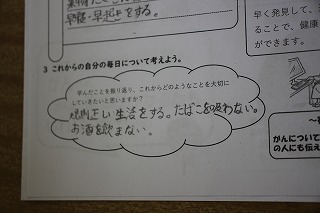 早寝・早起きをする。
早く発見して、
ることで、健康
ができます。
3 これからの自分の毎日について考えよう。
学んだことを振り返り、これからどのようなことを大切に
していきたいと思いますか?
規則正しい生活をする。たばこを吸わない。
お酒を飲まない。
がんについて
の人にも伝え